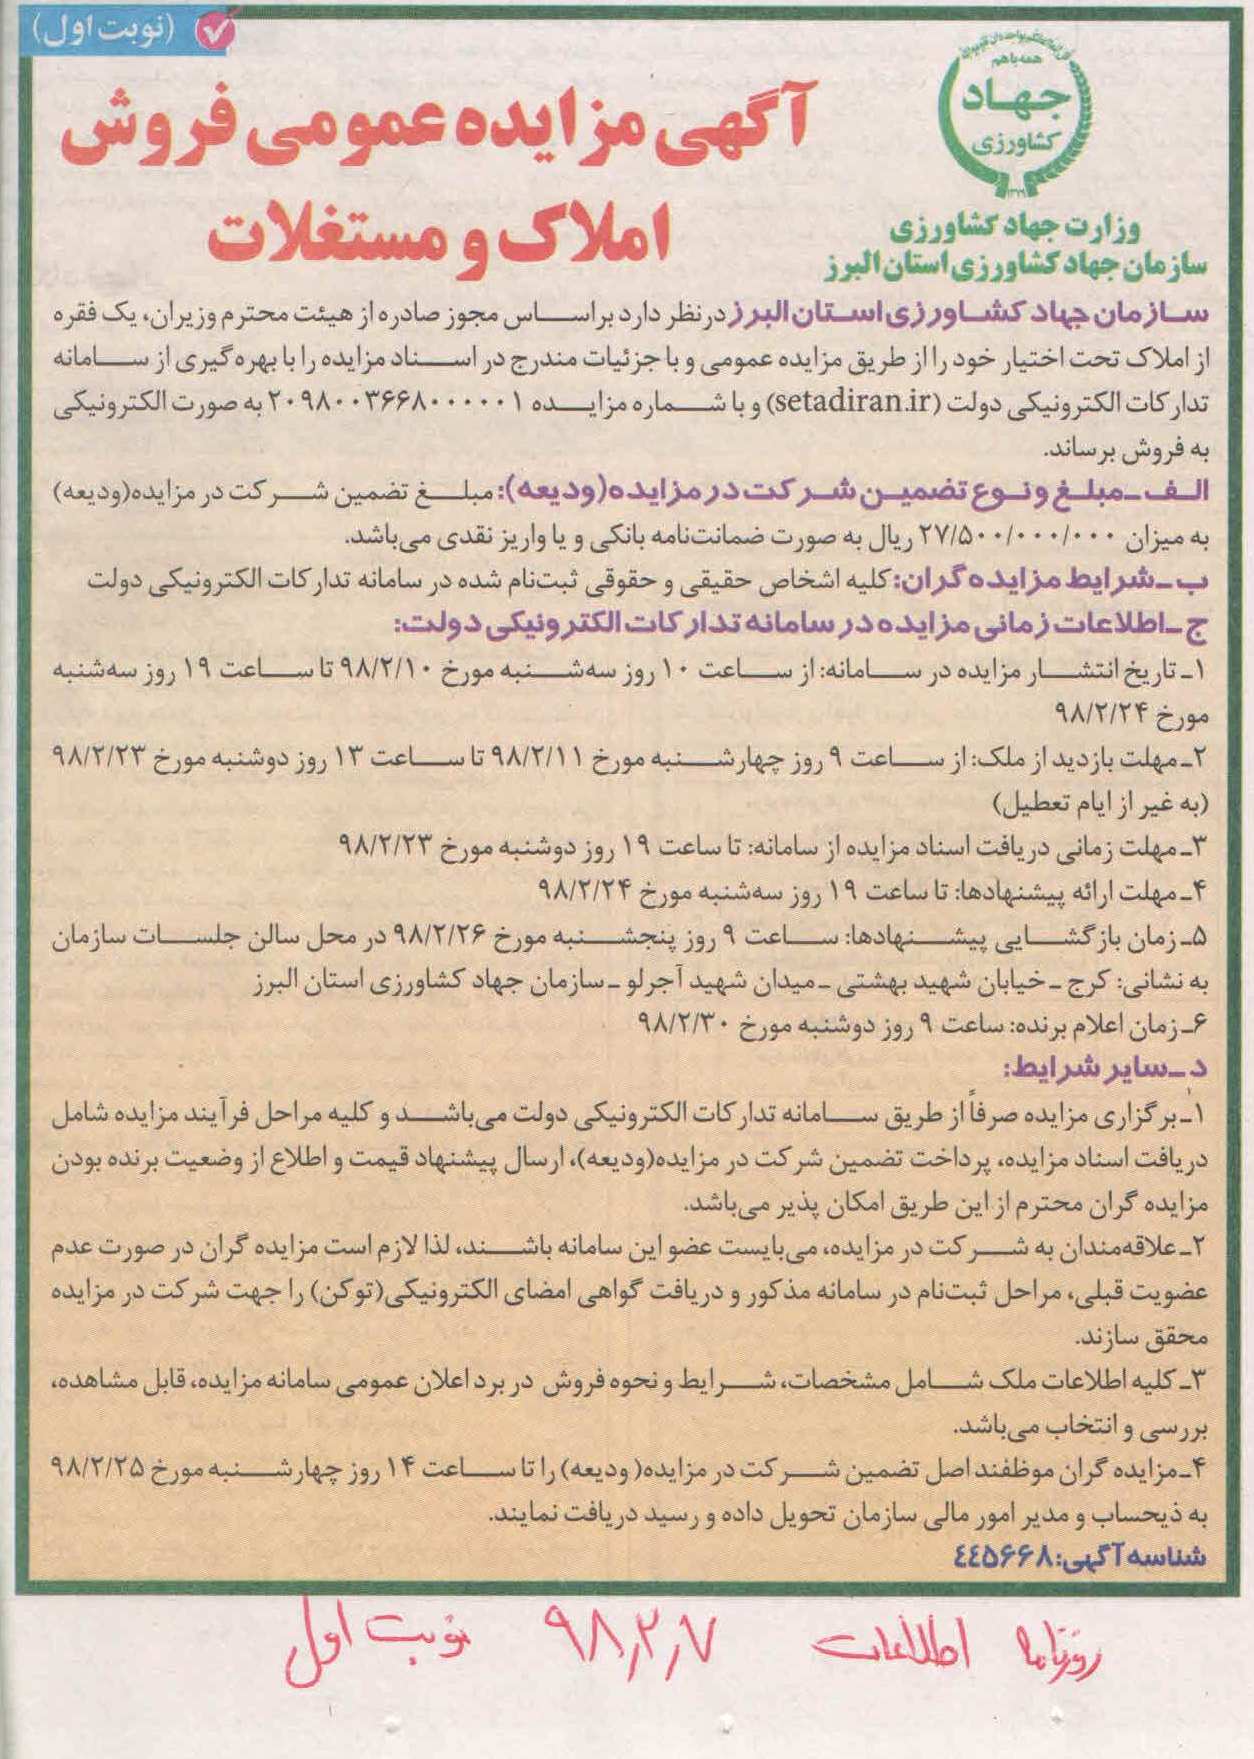 (نوبت اول)
همه با هم
جهاد
کشاورزی
۱۳۷۹
وزارت جهاد کشاورزی
سازمان جهاد کشاورزی استان البرز
آگهی مزایده عمومی فروش
املاک و مستغلات
سازمان جهاد کشاورزی استان البرز در نظر دارد براساس مجوز صادره از هیئت محترم وزیران، یک فقره
از املاک تحت اختیار خود را از طریق مزایده عمومی و با جزئیات مندرج در اسناد مزایده را با بهره‌گیری از سامانه
تدارکات الکترونیکی دولت (setadiran.ir) و با شماره مزایده ۲۰۹۸۰۰۳۶۶۸۰۰۰۰۰۱ به صورت الکترونیکی
به فروش برساند.
الف ـ مبلغ و نوع تضمین شرکت در مزایده (ودیعه): مبلغ تضمین شرکت در مزایده (ودیعه)
به میزان ۲۷/۵۰۰/۰۰۰/۰۰۰ ریال به صورت ضمانت‌نامه بانکی و یا واریز نقدی می‌باشد.
ب ـ شرایط مزایده گران: کلیه اشخاص حقیقی و حقوقی ثبت‌نام شده در سامانه تدارکات الکترونیکی دولت
ج ـ اطلاعات زمانی مزایده در سامانه تدارکات الکترونیکی دولت:
۱ـ تاریخ انتشار مزایده در سامانه: از ساعت ۱۰ روز سه‌شنبه مورخ ۹۸/۲/۱۰ تا ساعت ۱۹ روز سه‌شنبه
مورخ ۹۸/۲/۲۴
۲ـ مهلت بازدید از ملک: از ساعت ۹ روز چهارشنبه مورخ ۹۸/۲/۱۱ تا ساعت ۱۳ روز دوشنبه مورخ ۹۸/۲/۲۳
(به غیر از ایام تعطیل)
۳ـ مهلت زمانی دریافت اسناد مزایده از سامانه: تا ساعت ۱۹ روز دوشنبه مورخ ۹۸/۲/۲۳
۴ـ مهلت ارائه پیشنهادها: تا ساعت ۱۹ روز سه‌شنبه مورخ ۹۸/۲/۲۴
۵ـ زمان بازگشایی پیشنهادها: ساعت ۹ روز پنجشنبه مورخ ۹۸/۲/۲۶ در محل سالن جلسات سازمان
به نشانی: کرج ـ خیابان شهید بهشتی ـ میدان شهید آجرلو ـ سازمان جهاد کشاورزی استان البرز
۶ـ زمان اعلام برنده: ساعت ۹ روز دوشنبه مورخ ۹۸/۲/۳۰
د ـ سایر شرایط:
۱ـ برگزاری مزایده صرفاً از طریق سامانه تدارکات الکترونیکی دولت می‌باشد و کلیه مراحل فرآیند مزایده شامل
دریافت اسناد مزایده، پرداخت تضمین شرکت در مزایده (ودیعه)، ارسال پیشنهاد قیمت و اطلاع از وضعیت برنده بودن
مزایده گران محترم از این طریق امکان پذیر می‌باشد.
۲ـ علاقه‌مندان به شرکت در مزایده، می‌بایست عضو این سامانه باشند، لذا لازم است مزایده گران در صورت عدم
عضویت قبلی، مراحل ثبت‌نام در سامانه مذکور و دریافت گواهی امضای الکترونیکی (توکن) را جهت شرکت در مزایده
محقق سازند.
۳ـ کلیه اطلاعات ملک شامل مشخصات، شرایط و نحوه فروش در برد اعلان عمومی سامانه مزایده، قابل مشاهده،
بررسی و انتخاب می‌باشد.
۴ـ مزایده گران موظفند اصل تضمین شرکت در مزایده (ودیعه) را تا ساعت ۱۴ روز چهارشنبه مورخ ۹۸/۲/۲۵
به ذیحساب و مدیر امور مالی سازمان تحویل داده و رسید دریافت نمایند.
شناسه آگهی: ۴۴۵۶۶۸
روزنامه اطلاعات ۹۸,۲,۷ نوبت اول